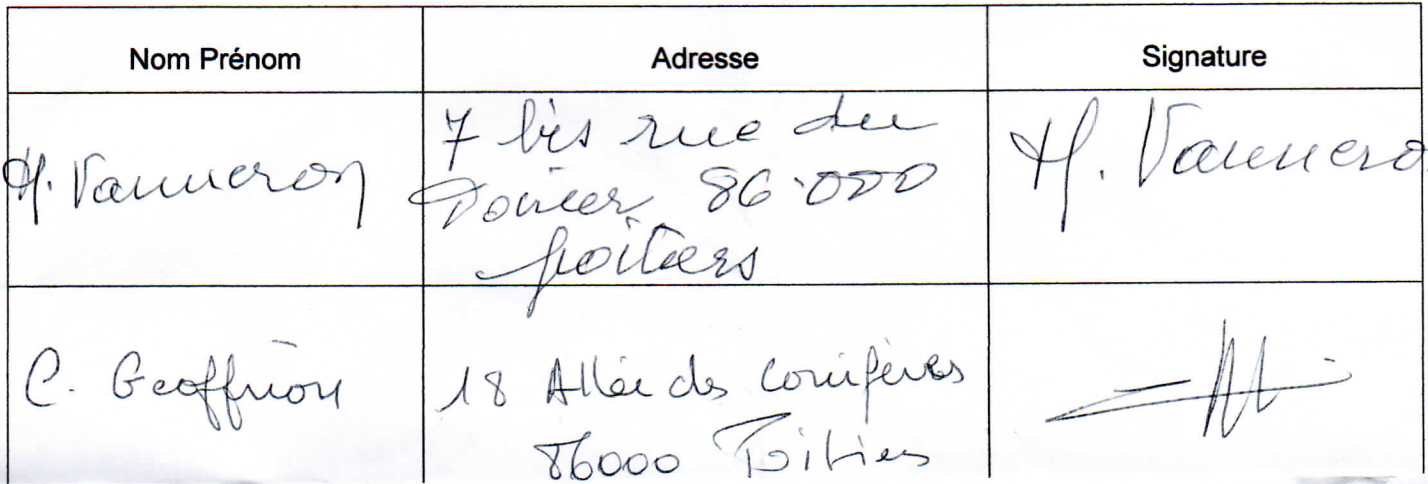 Nom Prénom Adresse Signature
H. Vanneron
7 bis rue du
86000
poitiers
H. Vannero
C. Geoffrion
18 Allée des conifères
86000 Poitiers